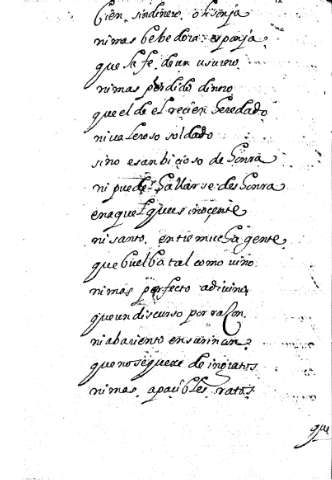 bien, sin dinero, o lisonja
ni mas bebedora esponja
que la fe de un usurero
ni mas perdido dinero
que el de el recien heredado
ni valeroso soldado
sino es anbicioso de honra
ni puede hallarse desonra
en aquel que es inocente
ni santo, entre mucha gente
que buelba tal como vino
ni mas perfecto adivino
que un discurso por rason
ni abariento en su rincon
que no se quexe de ingratos
ni mas apasibles ratos
que